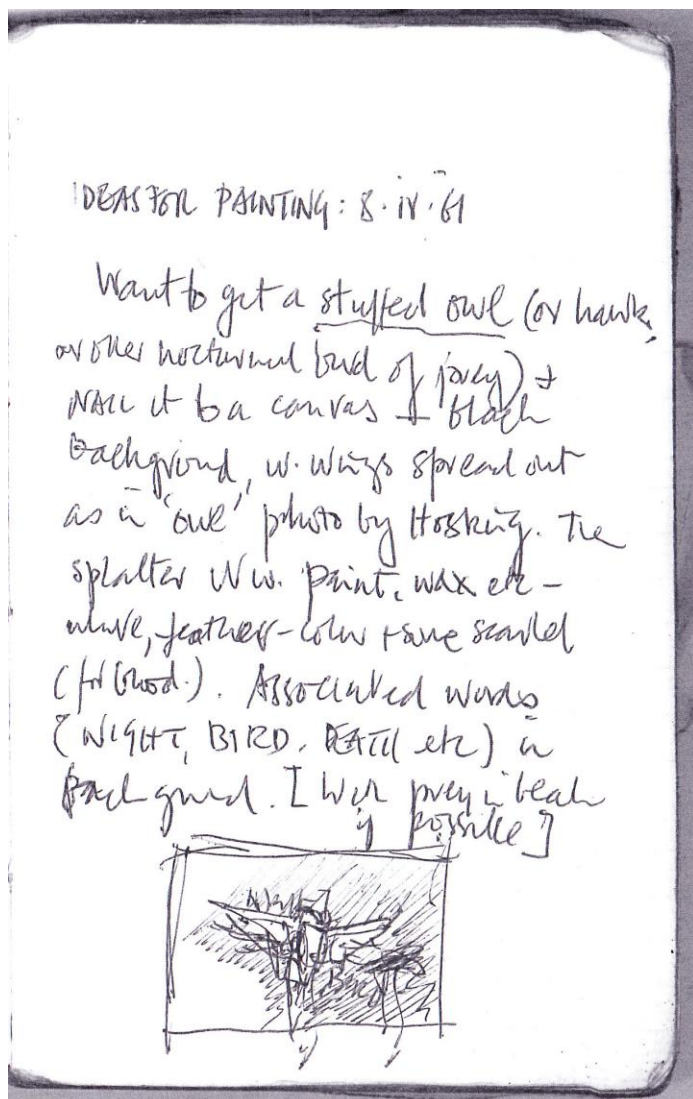 IDEAS FOR PAINTING: 8.iv.61
Want to get a stuffed owl (or hawk,
or other nocturnal bird of prey) +
NAIL it to a canvas + black
background, w. wings spread out
as in 'owl' photo by Hosking. The
splatter w. paint, wax etc –
feather-color + some scarlet
(for blood.). Associated words
(NIGHT, BIRD, DEATH etc) in
Background. [With prey in beak
if possible]
Night
Bird